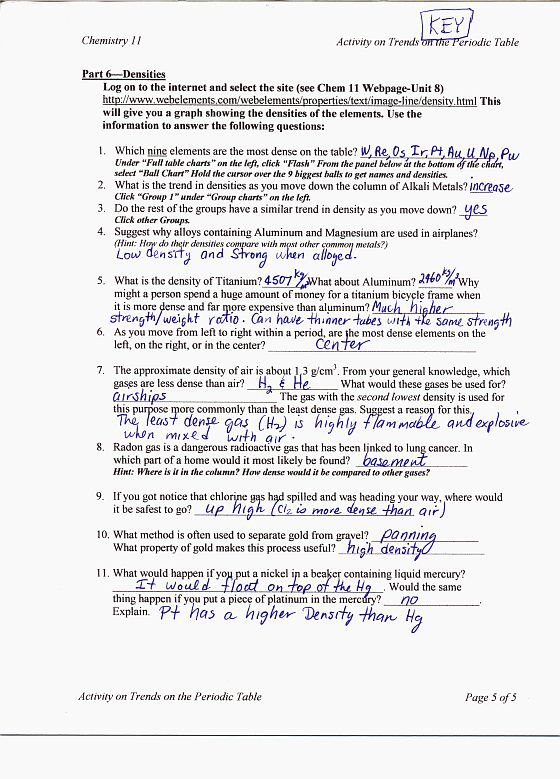 KEY
Chemistry 11 Activity on Trends on the Periodic Table
Part 6—Densities
Log on to the internet and select the site (see Chem 11 Webpage-Unit 8)
http://www.webelements.com/webelements/properties/text/image-line/density.html This
will give you a graph showing the densities of the elements. Use the
information to answer the following questions:
1. Which nine elements are the most dense on the table? W, Re, Os, Ir, Pt, Au, U, Np, Pu
Under "Full table charts" on the left, click "Flash" From the panel below at the bottom of the chart,
select "Ball Chart" Hold the cursor over the 9 biggest balls to get names and densities.
2. What is the trend in densities as you move down the column of Alkali Metals? increase
Click "Group 1" under "Group charts" on the left.
3. Do the rest of the groups have a similar trend in density as you move down? yes
Click other Groups.
4. Suggest why alloys containing Aluminum and Magnesium are used in airplanes?
(Hint: How do their densities compare with most other common metals?)
Low density and Strong when alloyed.
5. What is the density of Titanium? 4507 kg/m³ What about Aluminum? 2460 kg/m³ Why
might a person spend a huge amount of money for a titanium bicycle frame when
it is more dense and far more expensive than aluminum? Much higher
strength/weight ratio. Can have thinner tubes with the same strength
6. As you move from left to right within a period, are the most dense elements on the
left, on the right, or in the center? Center
7. The approximate density of air is about 1.3 g/cm³. From your general knowledge, which
gases are less dense than air? H₂ & He What would these gases be used for?
airships The gas with the second lowest density is used for
this purpose more commonly than the least dense gas. Suggest a reason for this.
The least dense gas (H₂) is highly flammable and explosive
when mixed with air.
8. Radon gas is a dangerous radioactive gas that has been linked to lung cancer. In
which part of a home would it most likely be found? basement
Hint: Where is it in the column? How dense would it be compared to other gases?
9. If you got notice that chlorine gas had spilled and was heading your way, where would
it be safest to go? up high (Cl₂ is more dense than air)
10. What method is often used to separate gold from gravel? panning
What property of gold makes this process useful? high density
11. What would happen if you put a nickel in a beaker containing liquid mercury?
It would float on top of the Hg. Would the same
thing happen if you put a piece of platinum in the mercury? no.
Explain. Pt has a higher Density than Hg
Activity on Trends on the Periodic Table Page 5 of 5